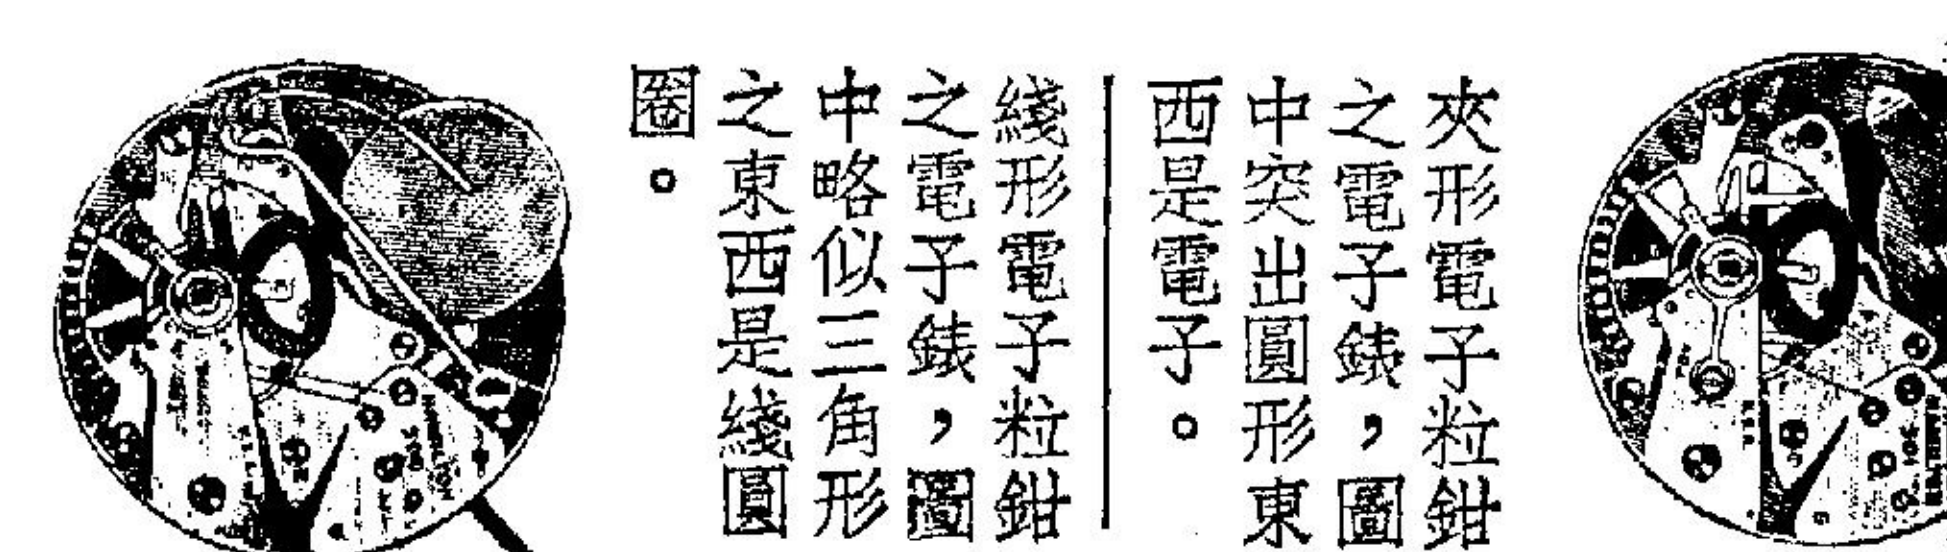 夾形電子粒鉗
之電子錶，圖
中突出圓形東
西是電子。
綫形電子粒鉗
之電子錶，圖
中略似三角形
之東西是綫圓
圈。